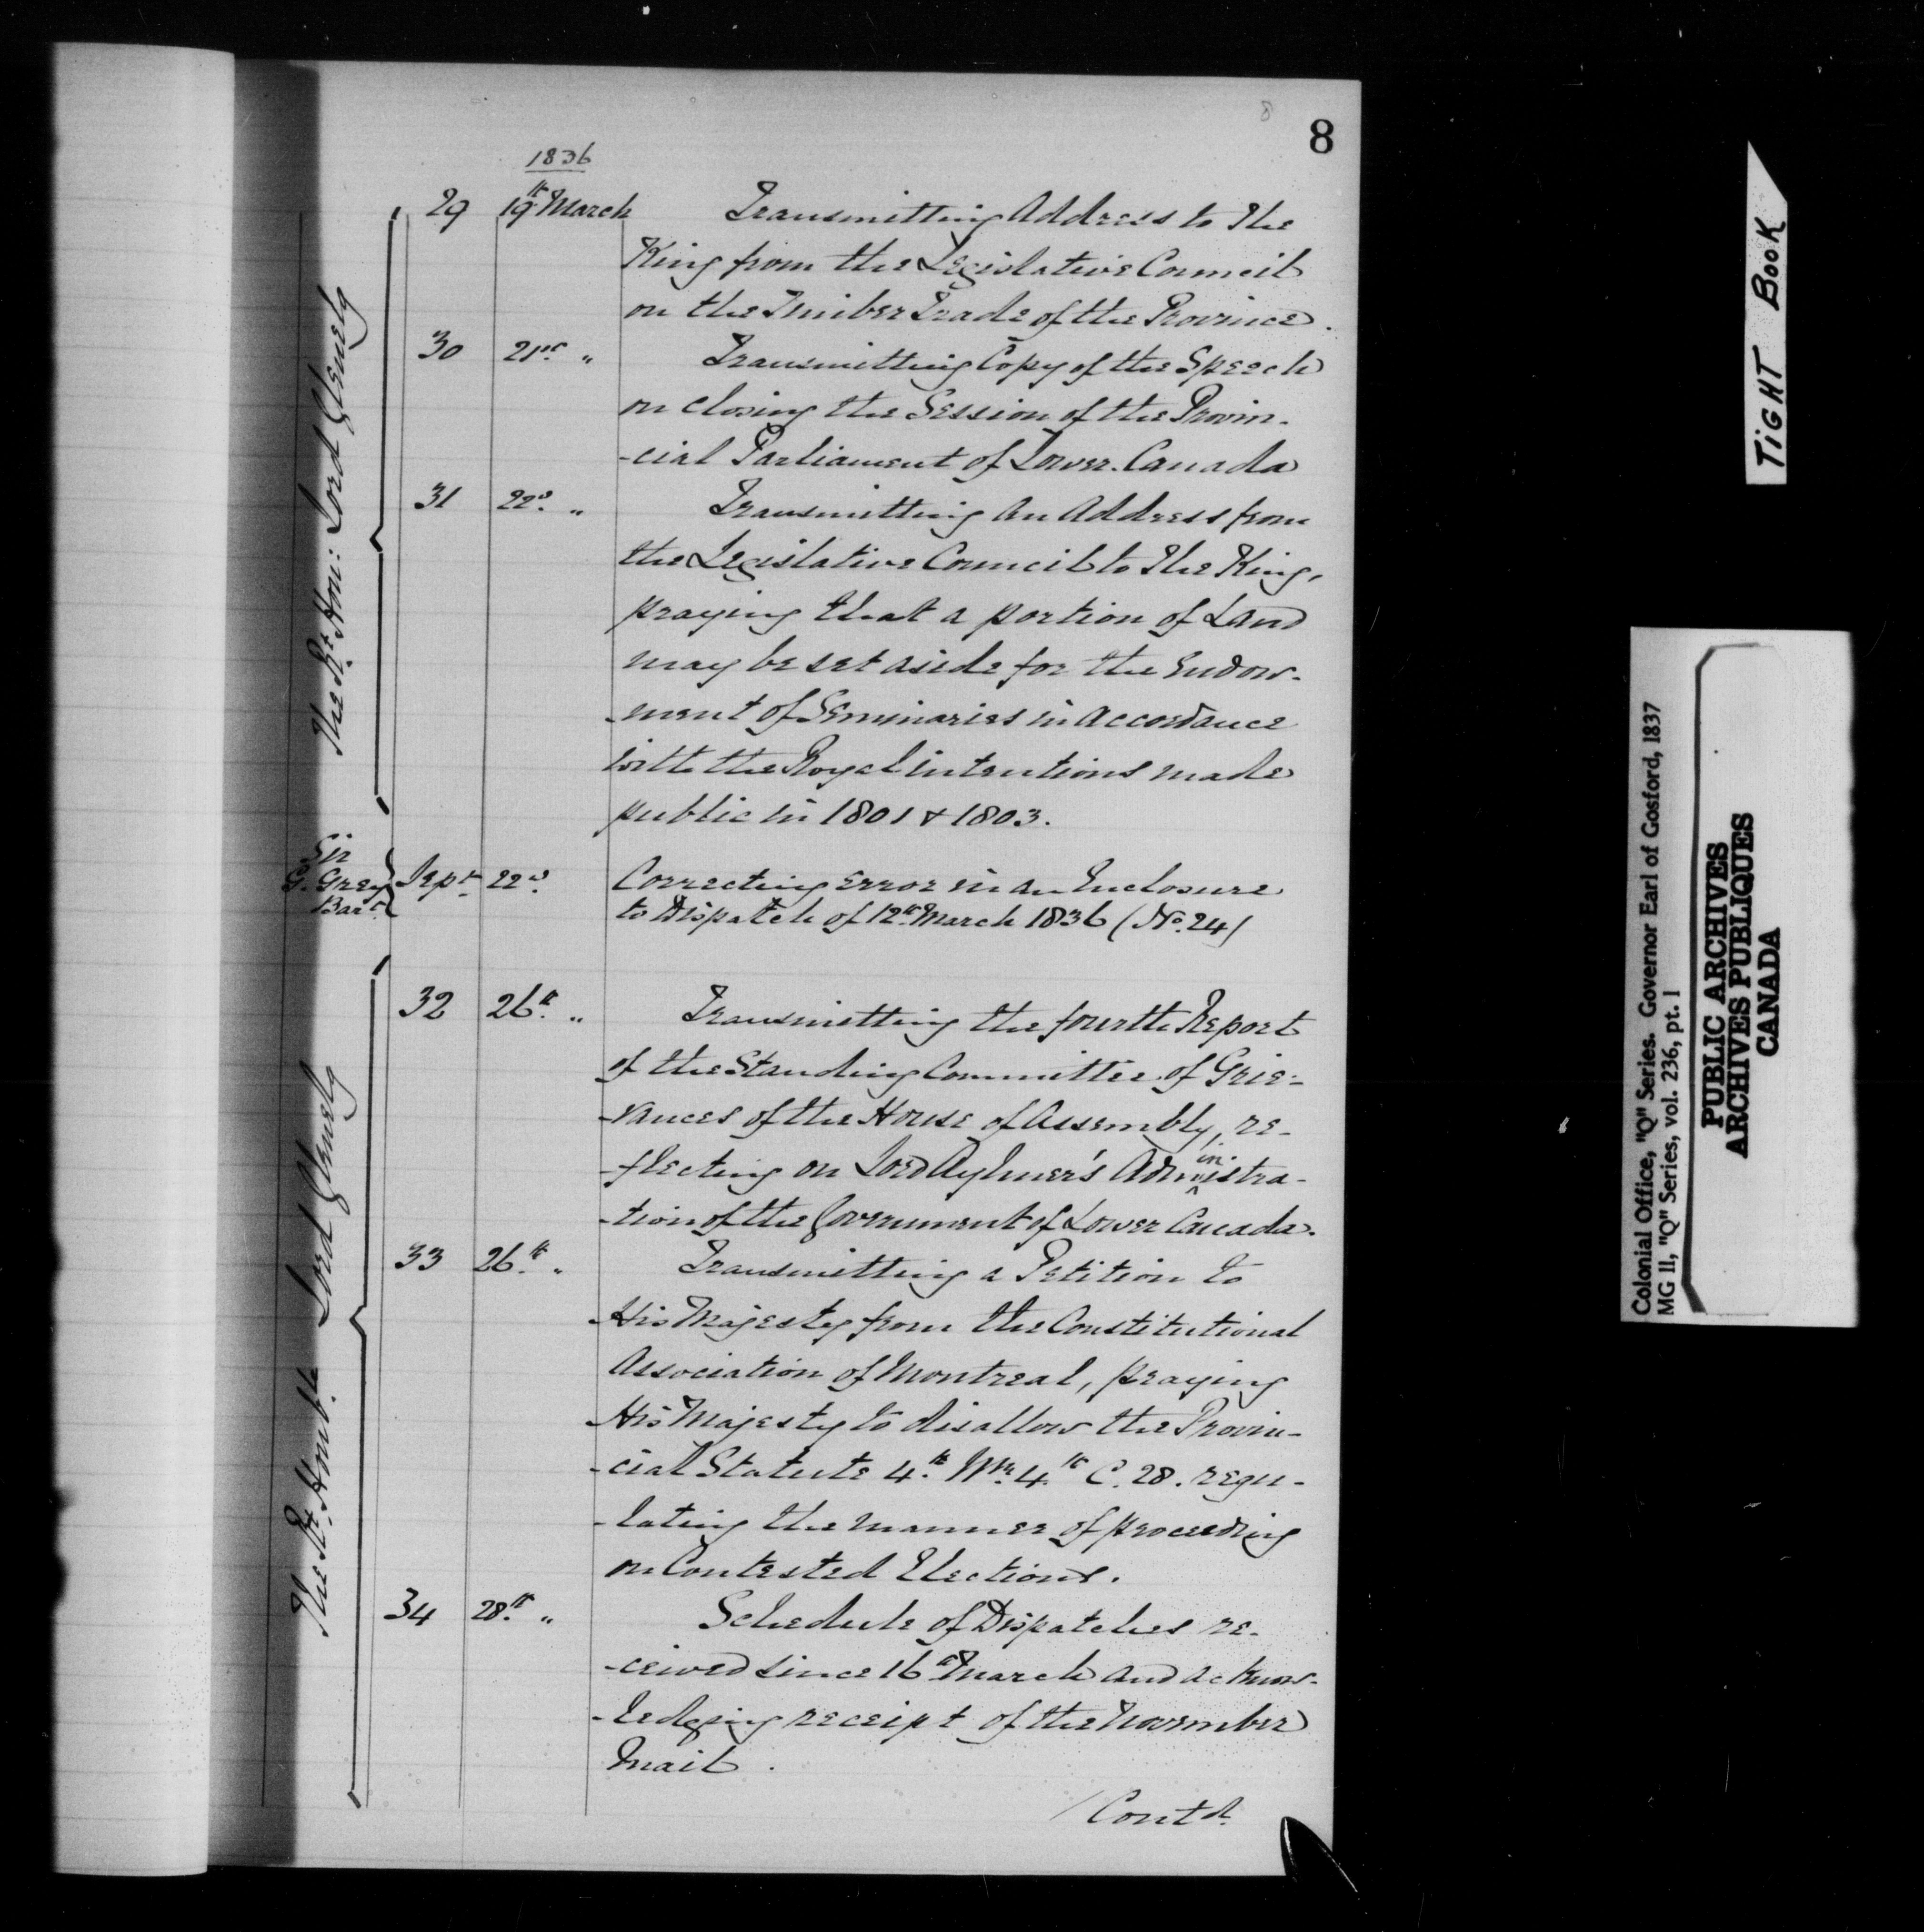 8
8
1836
The Rt. Hon: Lord Glenelg
29 19th March Transmitting Address to the
King from the Legislative Council
on the Timber Trade of the Province.
30 21st " Transmitting Copy of the Speech
on closing the Session of the Provin-
-cial Parliament of Lower Canada
31 22d. " Transmitting an Address from
the Legislative Council to the King,
praying that a portion of Land
may be set aside for the Endow-
-ment of Seminaries in accordance
with the Royal intentions made
public in 1801 & 1803.
Sir
G. Grey
Bart.
22d. Correcting error in an Enclosure
to Dispatch of 12th March 1836 (No. 24)
The Rt. Honble. Lord Glenelg
32 26th. " Transmitting the fourth Report
of the Standing Committee of Grie-
-vances of the House of Assembly, re-
-flecting on Lord Aylmer's Administra-
-tion of the Government of Lower Canada.
33 26th. " Transmitting a Petition to
His Majesty from the Constitutional
Association of Montreal, praying
His Majesty to disallow the Provin-
-cial Statute 4th. Wm. 4th C. 28. regu-
-lating the manner of proceeding
on Contested Elections.
34 28th. " Schedule of Dispatches re-
-ceived since 16th March and acknow-
-ledging receipt of the November
Mail.
/Contd.
TIGHT BOOK
Colonial Office, "Q" Series. Governor Earl of Gosford, 1837
MG 11, "Q" Series, vol. 236, pt. 1
PUBLIC ARCHIVES
ARCHIVES PUBLIQUES
CANADA